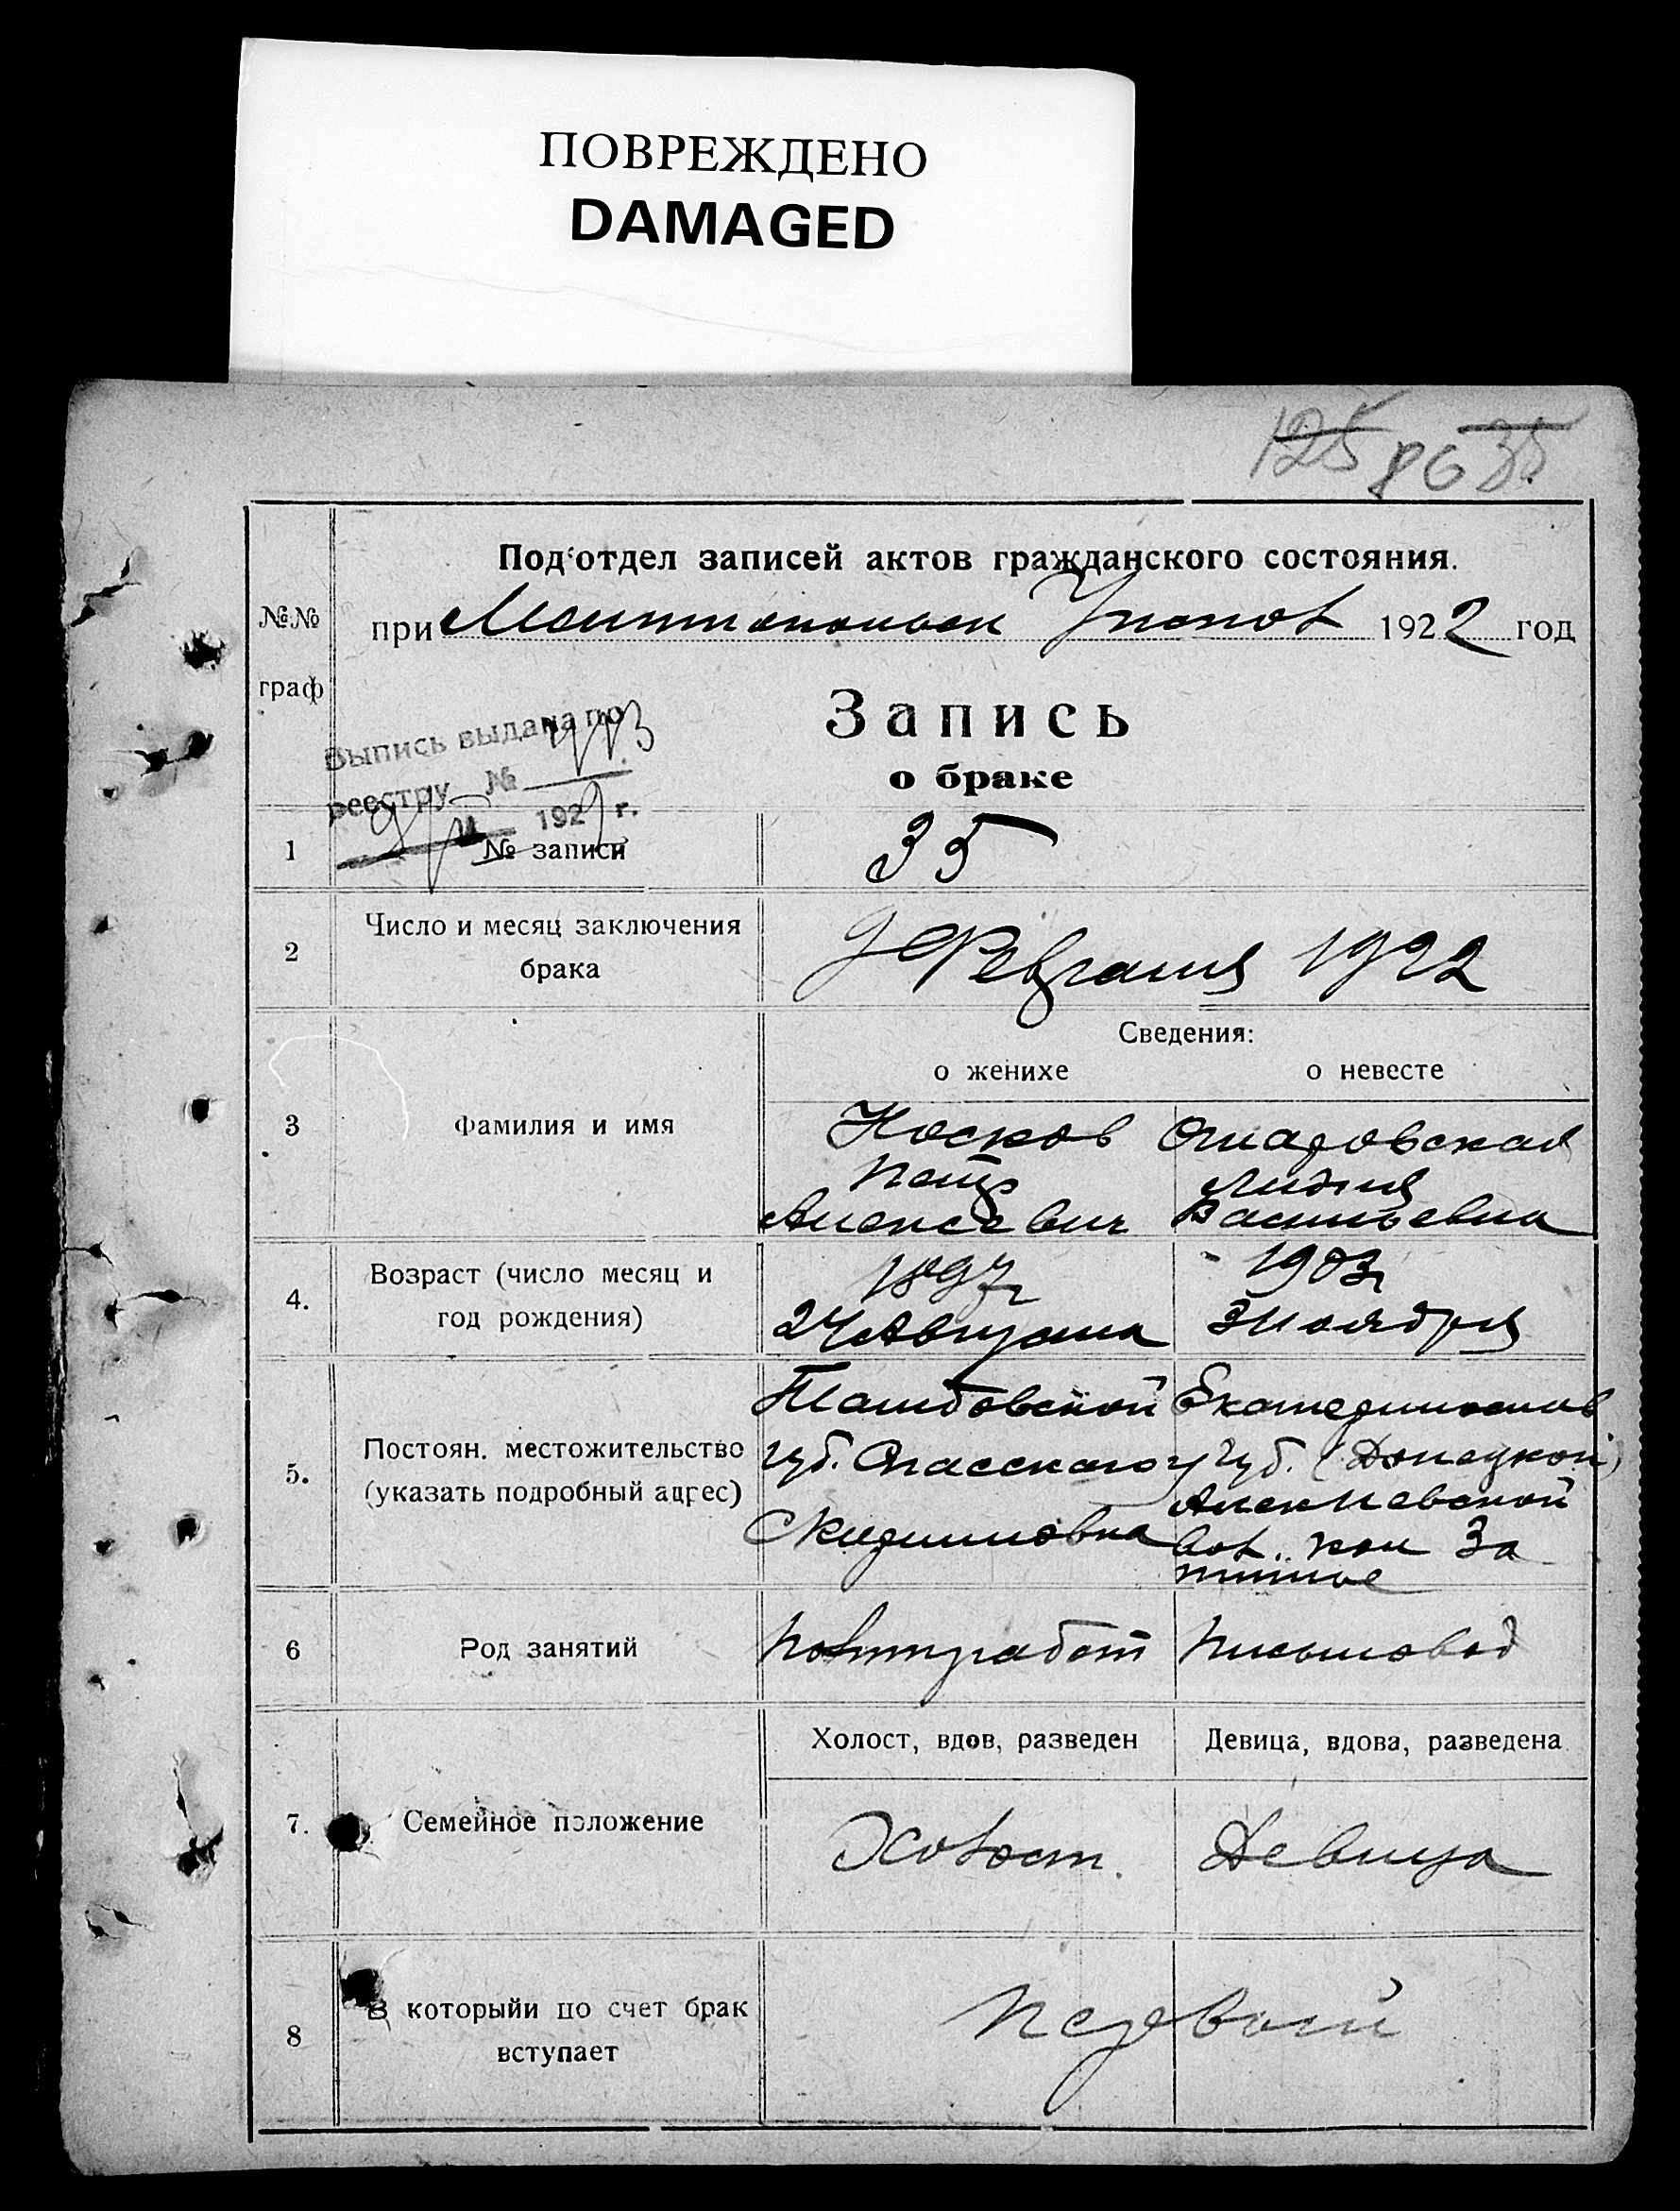 ПОВРЕЖДЕНО
DAMAGED
125 86 35
Под'отдел записей актов гражданского состояния.
№№ граф
при 1922 год
Запись
о браке
Выпись выдана по
реестру №
192 г.
1 № записи 35
2 Число и месяц заключения брака 9 Февраля 1922
Сведения:
о женихе о невесте
3 Фамилия и имя
Носков
Петр
Алексевич
Опаровская
Лидия
Васильевна
4. Возраст (число месяц и
год рождения)
1897 г
24 Августа
1903 г
3 Ноября
5. Постоян. местожительство
(указать подробный адрес)
Тамбовской
губ. Спасского у
Екатеринослав
губ. (Донецкой)
Алек Невской
вол.
6 Род занятий
Политработ
Письмовод
Холост, вдов, разведен Девица, вдова, разведена
7. Семейное положение
Холост. Девица
8 В которыйи по счет брак
вступает
Первый